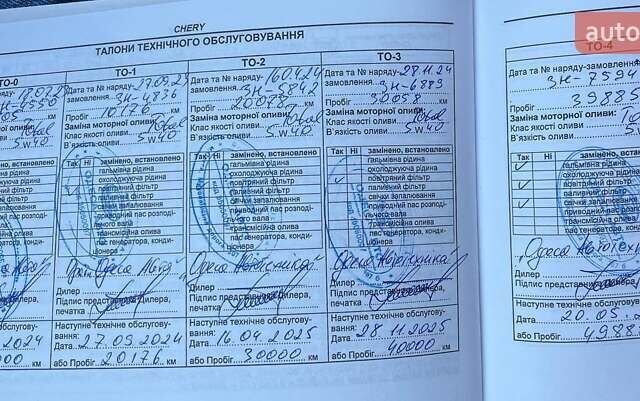 CHERY
auto
ТАЛОНИ ТЕХНІЧНОГО ОБСЛУГОВУВАННЯ
ТО-0
18.07.2
замовлення
ЗН-4550
Total
5w40
2024
ТО-1
Дата та № наряду-
замовлення...
27.09.23
ЗН-4836
Пробіг 10176 км
Заміна моторної оливи:
Клас якості оливи Total
В`язкість оливи 5w40
Так Ні замінено, встановлено
гальмівна рідина
охолоджуюча рідина
повітряний фільтр
паливний фільтр
свічки запалювання
приводний пас розподі-
льчого вала
трансмісійна олива
пас генератора, конди-
ціонера
Дилер
Підпис представника Дилера,
печатка
Наступне технічне обслугову-
вання:
Дата 27.09.2024
або Пробіг 20176 км
ТО-2
Дата та № наряду-
замовлення...
16.04.24
ЗН-5842
Пробіг 20078 км
Заміна моторної оливи:
Клас якості оливи Total
В`язкість оливи 5w40
Так Ні замінено, встановлено
гальмівна рідина
охолоджуюча рідина
повітряний фільтр
паливний фільтр
свічки запалювання
приводний пас розподі-
льчого вала
трансмісійна олива
пас генератора, конди-
ціонера
Дилер
Підпис представника Дилера,
печатка
Наступне технічне обслугову-
вання:
Дата 16.04.2025
або Пробіг 30000 км
ТО-3
Дата та № наряду-
замовлення...
28.11.24
ЗН-6889
Пробіг 30058 км
Заміна моторної оливи:
Клас якості оливи Total
В`язкість оливи 5w40
Так Ні замінено, встановлено
гальмівна рідина
охолоджуюча рідина
повітряний фільтр
паливний фільтр
свічки запалювання
приводний пас розподі-
льчого вала
трансмісійна олива
пас генератора, конди-
ціонера
Дилер
Підпис представника Дилера,
печатка
Наступне технічне обслугову-
вання:
Дата 28.11.2025
або Пробіг 40000 км
ТО-4
Дата та № наряду-
замовлення...
ЗН-7594
Пробіг 39885
Заміна моторної оливи:
Клас якості оливи
В`язкість оливи
Так Ні замінено, встановлено
гальмівна рідина
охолоджуюча рідина
повітряний фільтр
паливний фільтр
свічки запалювання
приводний пас розподі-
льчого вала
трансмісійна олива
пас генератора, конди-
ціонера
Одеса
Дилер
Підпис представника
печатка
Наступне технічне обслугову-
вання:
Дата 20.05.
або Пробіг 4988